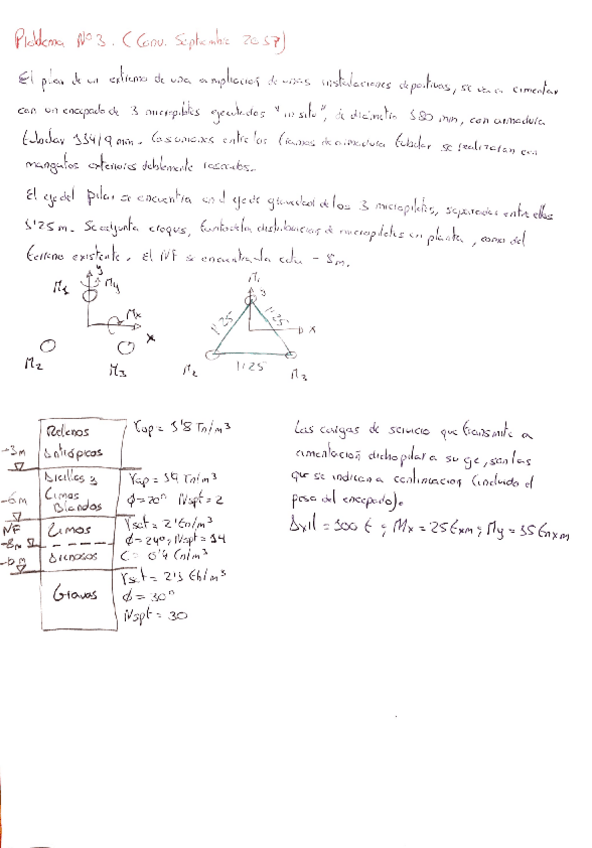 Problema Nº3. (Conv. Septiembre 2017)
El pilar de un extremo de una ampliación de unas instalaciones deportivas, se va a cimentar
con un encepado de 3 micropilotes ejecutados "in situ", de diámetro 180 mm, con armadura
tubular 114/9 mm. Las uniones entre los tramos de armadura tubular se realizarán con
manguitos exteriores doblemente roscados.
El eje del pilar se encuentra en el eje de gravedad de los 3 micropilotes, separados entre ellos
1'25 m. Se adjunta croquis, tanto de la distribución de micropilotes en planta, como del
terreno existente. El NF se encuentra a la cota -8m.
y
M1 My
Mx
x
M2 M3
M1
y
1'25 1'25
x
M2 1'25 M3
Rellenos
Antrópicos
γap = 1'8 Tn/m³
-3m
Arcillas y
Limos
Blandos
γap = 19 Tn/m³
φ=20º Nspt = 2
-6m
NF
-8m
Limos
Arenosos
γsat = 2 Tn/m³
φ=24º; Nspt = 14
C = 0'4 Tn/m²
Gravas
γsat = 2'1 Tn/m³
φ = 30º
Nspt = 30
Las cargas de servicio que transmite a
cimentación dicho pilar a su eje, son las
que se indican a continuación (incluido el
peso del encepado).
Axil = 100 t ; Mx = 25 txm ; My = 35 Tnxm